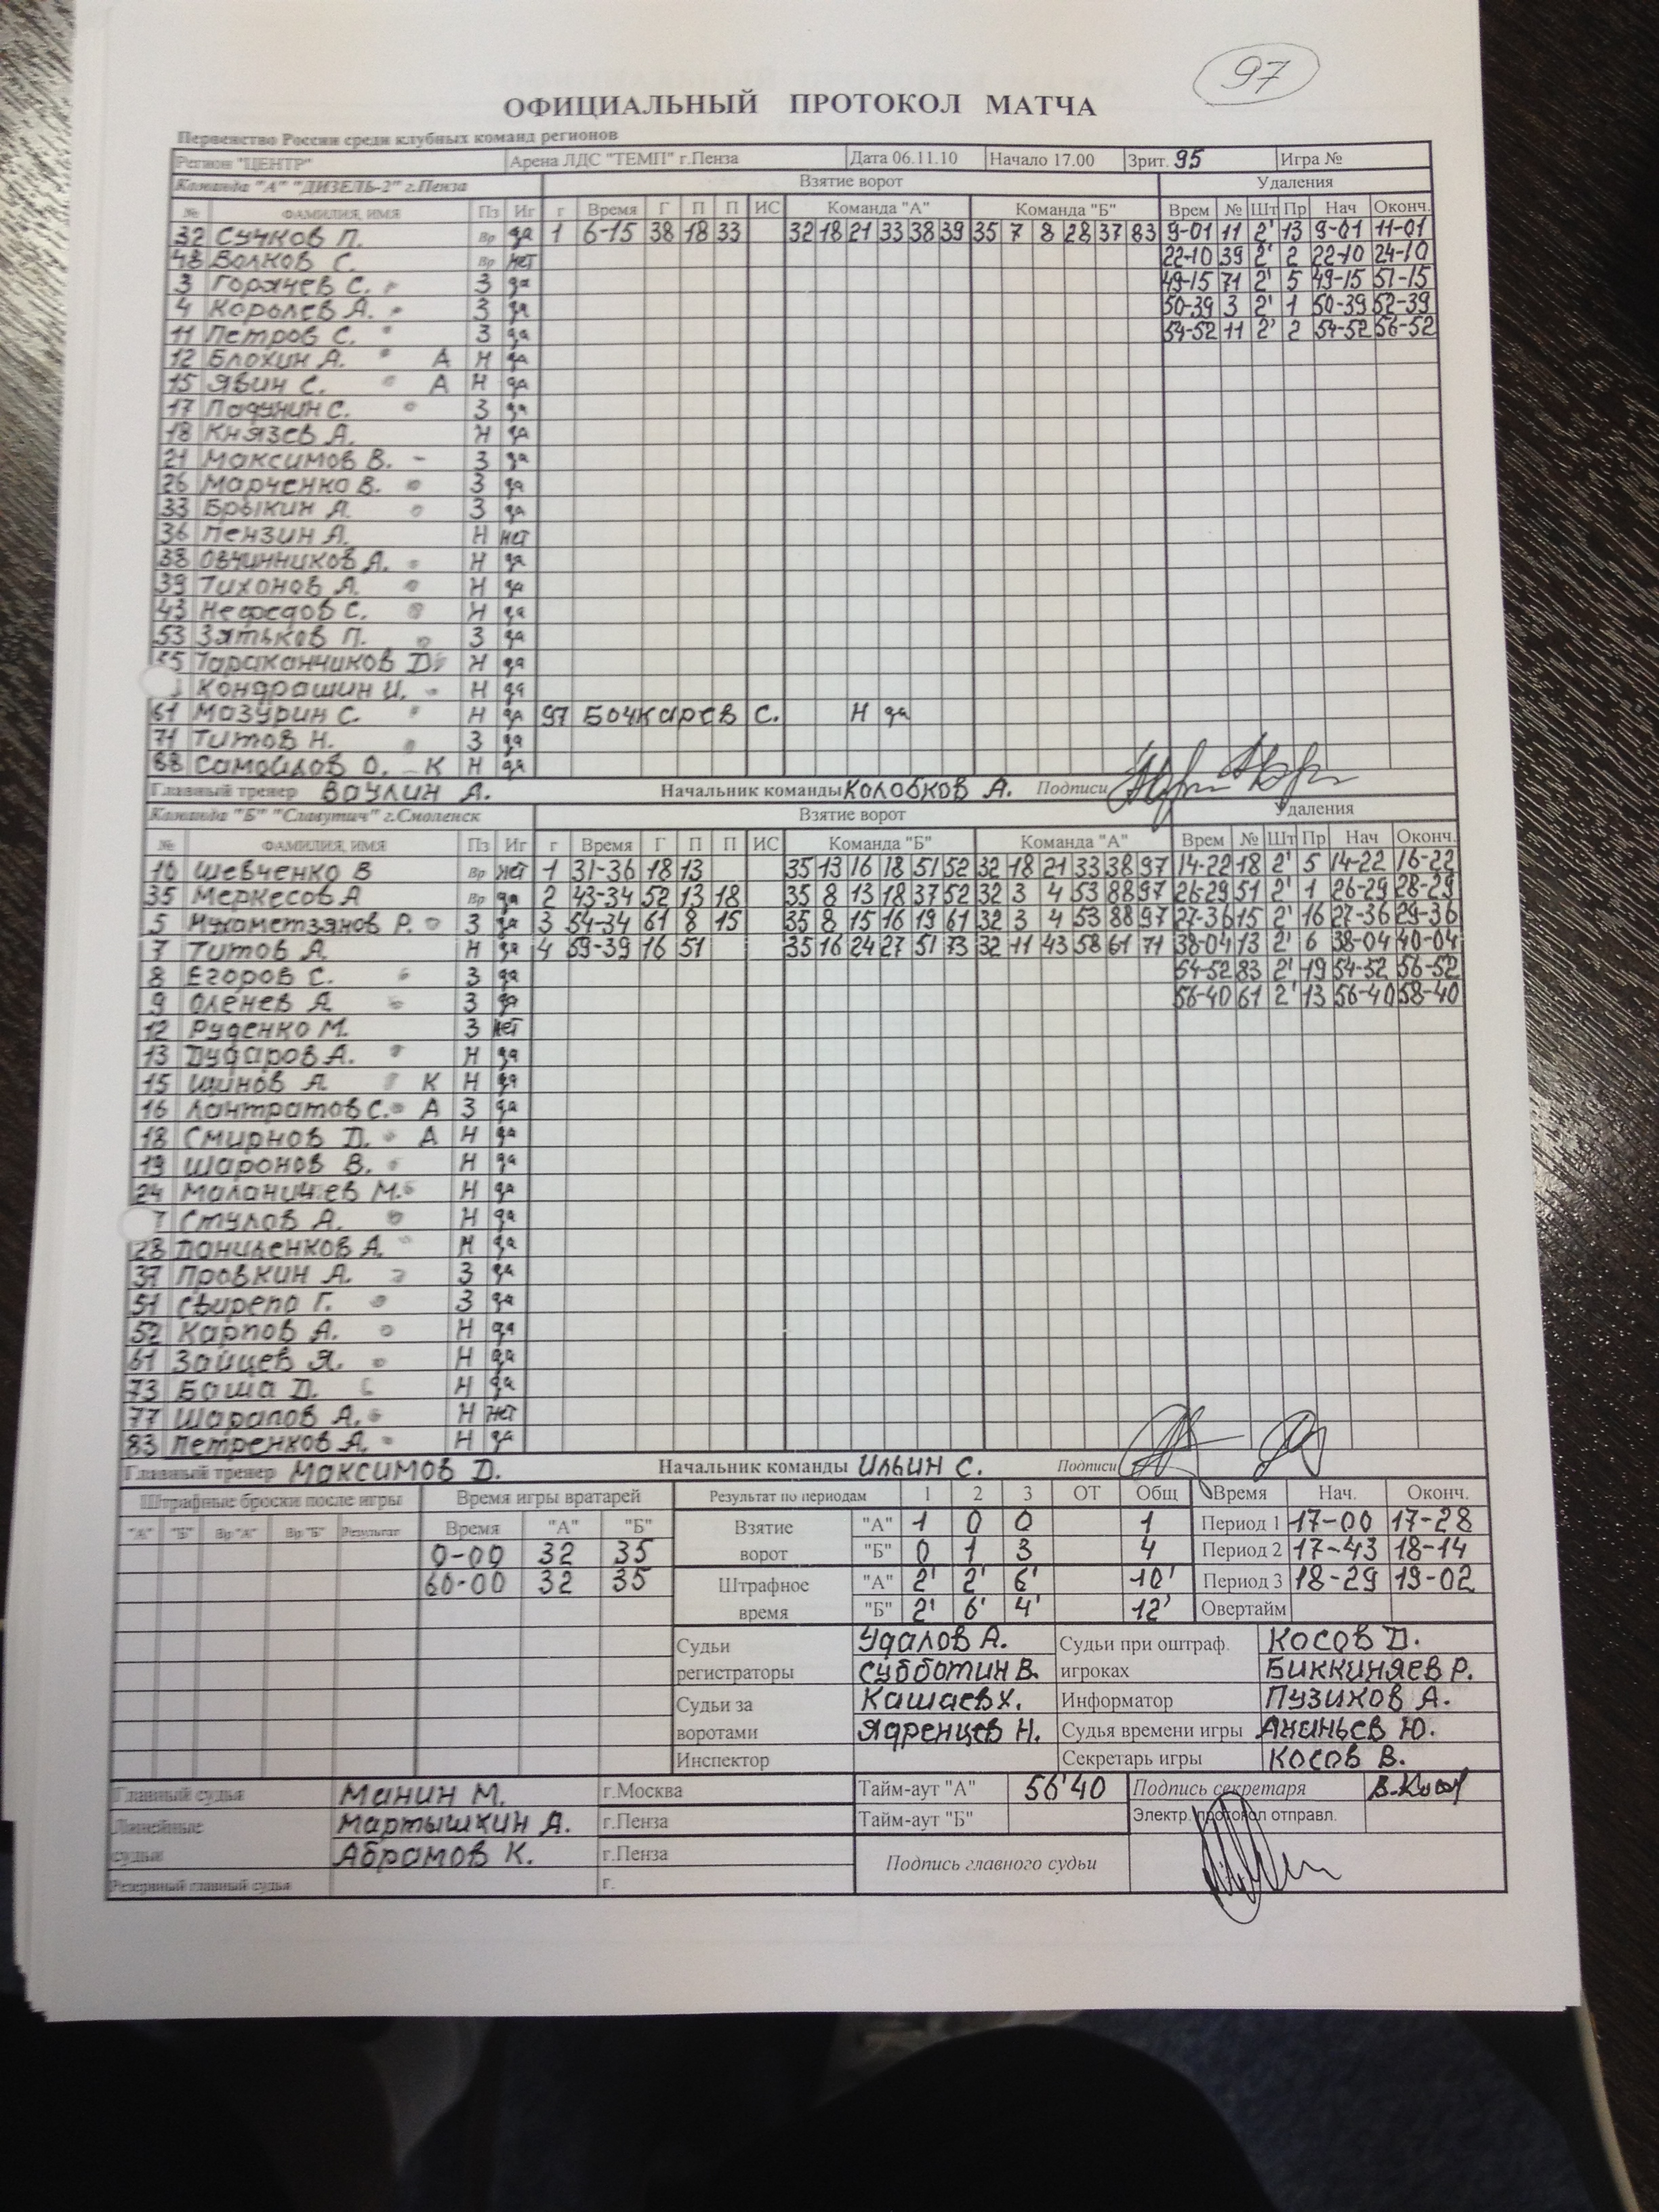 97
ОФИЦИАЛЬНЫЙ ПРОТОКОЛ МАТЧА
Первенство России среди клубных команд регионов
Регион "ЦЕНТР" Арена ЛДС "ТЕМП" г.Пенза Дата 06.11.10 Начало 17.00 Зрит. 95 Игра №
Команда "А" "ДИЗЕЛЬ-2" г.Пенза Взятие ворот Удаления
№ ФАМИЛИЯ, ИМЯ Пз Иг г Время Г П П ИС Команда "А" Команда "Б" Врем № Шт Пр Нач Оконч.
32 Сучков П. Вр да 1 6-15 38 18 33 32 18 21 33 38 39 35 7 8 28 37 83 9-01 11 2' 13 9-01 11-01
48 Волков С. Вр нет 22-10 39 2' 2 22-10 24-10
3 Горячев С. З да 49-15 71 2' 5 49-15 51-15
4 Королев А. З да 50-39 3 2' 1 50-39 52-39
11 Петров С. З да 54-52 11 2' 2 54-52 56-52
12 Блохин А. А Н да
15 Явин С. А Н да
17 Падунин С. З да
18 Князев А. Н да
21 Максимов В. З да
26 Марченко В. З да
33 Брыкин А. З да
36 Пензин А. Н нет
38 Овчинников А. Н да
39 Тихонов А. Н да
43 Нефедов С. Н да
53 Зятьков П. З да
55 Тараканчиков Д. Н да
Кондрашин И. Н да
61 Мазурин С. Н да 97 Бочкарев С. Н да
71 Титов Н. З да
88 Самойлов О. К Н да
Главный тренер Ваулин А. Начальник команды Колобков А. Подписи
Команда "Б" "Славутич" г.Смоленск Взятие ворот Удаления
№ ФАМИЛИЯ, ИМЯ Пз Иг г Время Г П П ИС Команда "Б" Команда "А" Врем № Шт Пр Нач Оконч.
10 Шевченко В Вр нет 1 31-36 18 13 35 13 16 18 51 52 32 18 21 33 38 97 14-22 18 2' 5 14-22 16-22
35 Меркесов А Вр да 2 43-34 52 13 18 35 8 13 18 37 52 32 3 4 53 88 97 26-29 51 2' 1 26-29 28-29
5 Мухаметзянов Р. З да 3 54-34 61 8 15 35 8 15 16 19 61 32 3 4 53 88 97 27-36 15 2' 16 27-36 29-36
7 Титов А. Н да 4 59-39 16 51 35 16 24 27 51 73 32 11 43 58 61 71 38-04 13 2' 6 38-04 40-04
8 Егоров С. З да 54-52 83 2' 19 54-52 56-52
9 Оленев А З да 56-40 61 2' 13 56-40 58-40
12 Руденко М. З нет
13 Дударов А. Н да
15 Шинов А К Н да
16 Лантратов С. А З да
18 Смирнов Д. А Н да
19 Шаронов В. Н да
24 Маланичев М. Н да
7 Стулов А. Н да
28 Даниленков А. Н да
37 Провкин А. З да
51 Свирепо Г. З да
52 Карпов А. Н да
61 Зайцев Я. Н да
73 Баша Д. Н да
77 Шарапов А. Н нет
83 Петренков А. Н да
Главный тренер Максимов Д. Начальник команды Ильин С. Подписи
Штрафные броски после игры Время игры вратарей Результат по периодам 1 2 3 ОТ Общ Время Нач. Оконч.
"А" "Б" Вр "А" Вр "Б" Результат Время "А" "Б" Взятие ворот "А" 1 0 0 1 Период 1 17-00 17-28
0-00 32 35 "Б" 0 1 3 4 Период 2 17-43 18-14
60-00 32 35 Штрафное время "А" 2' 2' 6' 10' Период 3 18-29 19-02
"Б" 2' 6' 4' 12' Овертайм
Судьи регистраторы Удалов А. Судьи при оштраф. игроках Косов Д.
Субботин В. Биккиняев Р.
Судьи за воротами Кашаев Х. Информатор Пузиков А.
Ядренцев Н. Судья времени игры Ананьев Ю.
Инспектор Секретарь игры Косов В.
Главный судья Манин М. г.Москва Тайм-аут "А" 56'40 Подпись секретаря В.Косов
Линейные судьи Мартышкин А. г.Пенза Тайм-аут "Б" Электр. протокол отправл.
Абрамов К. г.Пенза Подпись главного судьи
Резервный главный судья г.